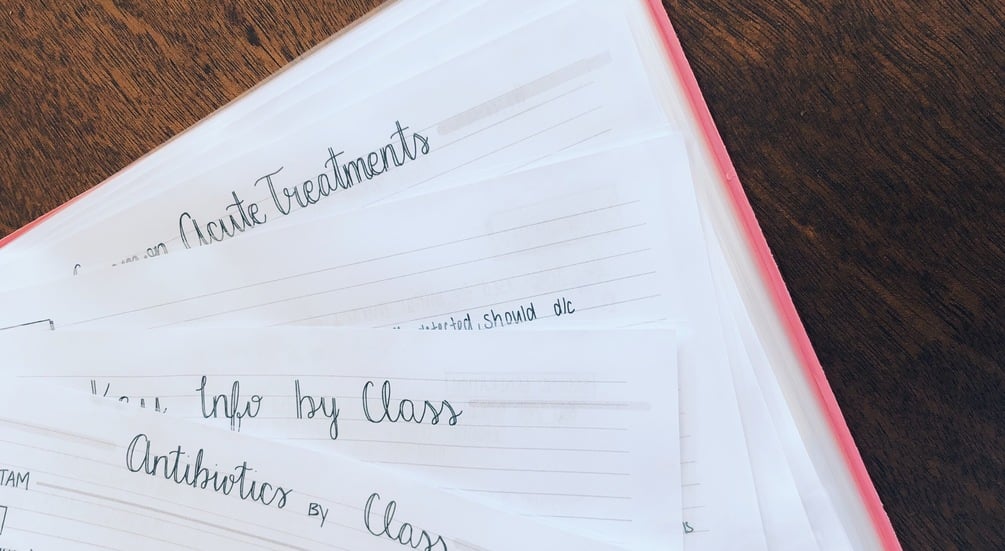 Acute Treatments
detected, should d/c
Info by Class
Antibiotics BY Class
TAM